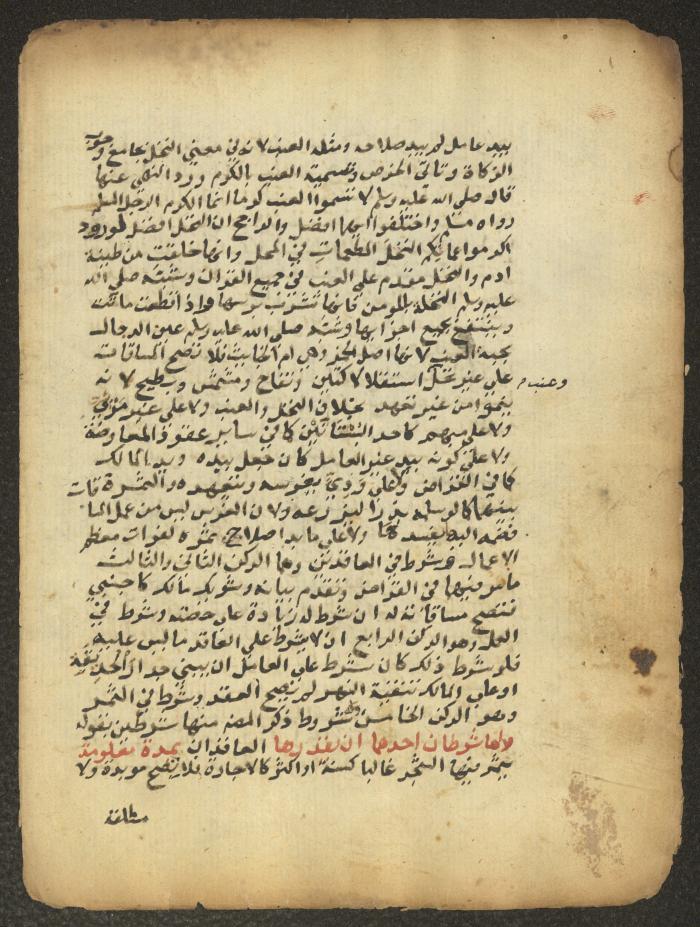 بيد عامل لم يبد صلاحه ومثله العنب لانه في معنى النخل بجامع وجوب
الزكاة وتأتي الخرص وتسمية العنب بالكرم ورد النهي عنها
قال صلى الله عليه وسلم لا تسموا العنب كرما انما الكرم الرجل المسلم
رواه مسلم واختلفوا ايهما افضل والراجح ان النخل افضل لورود
اكرموا عماتكم النخل المطعمات في المحل وانها خلقت من طينة
ادم والنخل مقدم على العنب في جميع القران وشبه صلى الله
عليه وسلم النخلة بالمومن فانها تشرب براسها واذا قطعت ماتت
وينتفع بجميع اجزائها وشبه صلى الله عليه وسلم عين الدجال
بحبة العنب لانها اصل الخمر وهي ام الخبايث فلا تصح المساقات
على غير نخل استقلالا كتين وتفاح ومشمش وبطيخ لانه
وعنب
ينمو من غير تعهد بخلاف النخل والعنب ولا على غير مرئي
ولا على مبهم كاحد البستانين كما في ساير عقود المعاوضة
ولا على كونه بيد غير العامل كان جعل بيده وبيد المالك
كما في القراض ولا على ودي يغرسه ويتعهده والثمرة
بينهما كما لو سلمه بذرا ليزرعه ولان الغرس ليس من عمل المسا
قاة فضمه اليه يفسدها ولا على ما بدا صلاح ثمره لفوات معظم
الاعمال وشرط في العاقدين وهما الركن الثاني والثالث
ما مر فيهما في القراض وتقدم بيانه وشريك مالك كاجنبي
فتصح مساقاته له ان شرط له زيادة على حصته وشرط في
العمل وهو الركن الرابع ان لا يشرط على العاقد ما ليس عليه
فلو شرط ذلك كان شرط على العامل ان يبني جدار الحديقة
او على المالك تنقية النهر لم يصح العقد وشرط في الثمر
وهو الركن الخامس شروط ذكر المصنف منها شرطين بقوله
ولها شرطان احدهما ان يقدرها العاقدان بمدة معلومة
يثمر فيها الشجر غالبا كسنة او اكثر كالاجارة فلا تصح مويدة ولا
مطلقة